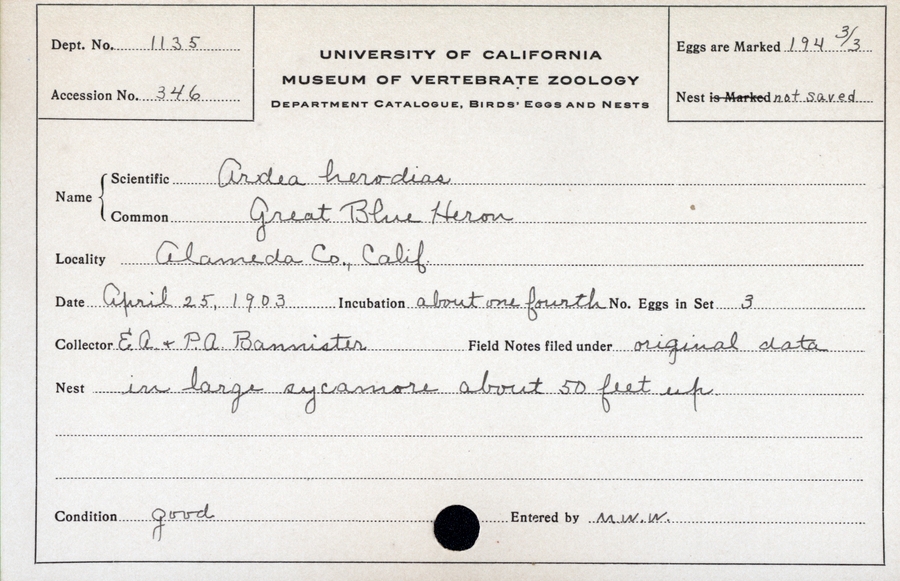 Dept. No. 1135
Accession No. 346
UNIVERSITY OF CALIFORNIA
MUSEUM OF VERTEBRATE ZOOLOGY
DEPARTMENT CATALOGUE, BIRDS' EGGS AND NESTS
Eggs are Marked 194 3/3
Nest is Marked not saved
Name { Scientific Ardea herodias
Common Great Blue Heron
Locality Alameda Co., Calif.
Date April 25, 1903 Incubation about one fourth No. Eggs in Set 3
Collector E.A. + P.A. Bannister Field Notes filed under original data
Nest in large sycamore about 50 feet up.
Condition good Entered by M.W.W.